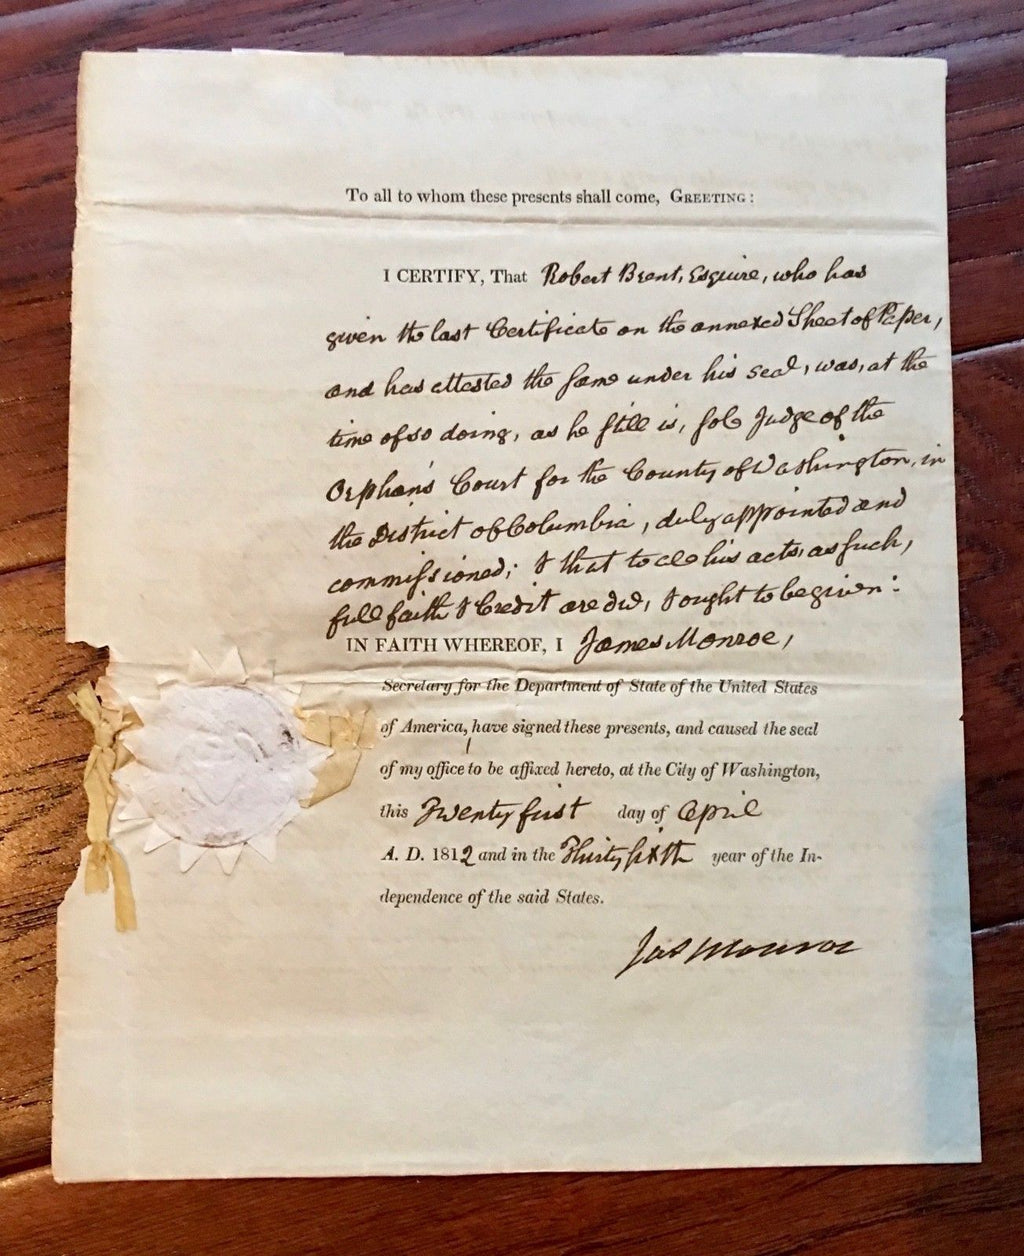 To all to whom these presents shall come, GREETING:
I CERTIFY, That Robert Brent, Esquire, who has
given the last Certificate on the annexed Sheet of Paper,
and has attested the same under his seal, was, at the
time of so doing, as he still is, sole Judge of the
Orphan's Court for the County of Washington, in
the District of Columbia, duly appointed and
commissioned; & that to all his acts, as such,
full faith & Credit are due, & ought to be given:
IN FAITH WHEREOF, I James Monroe,
Secretary for the Department of State of the United States
of America, have signed these presents, and caused the seal
of my office to be affixed hereto, at the City of Washington,
this Twenty first day of April
A. D. 1812 and in the Thirty sixth year of the In-
dependence of the said States.
Jas Monroe